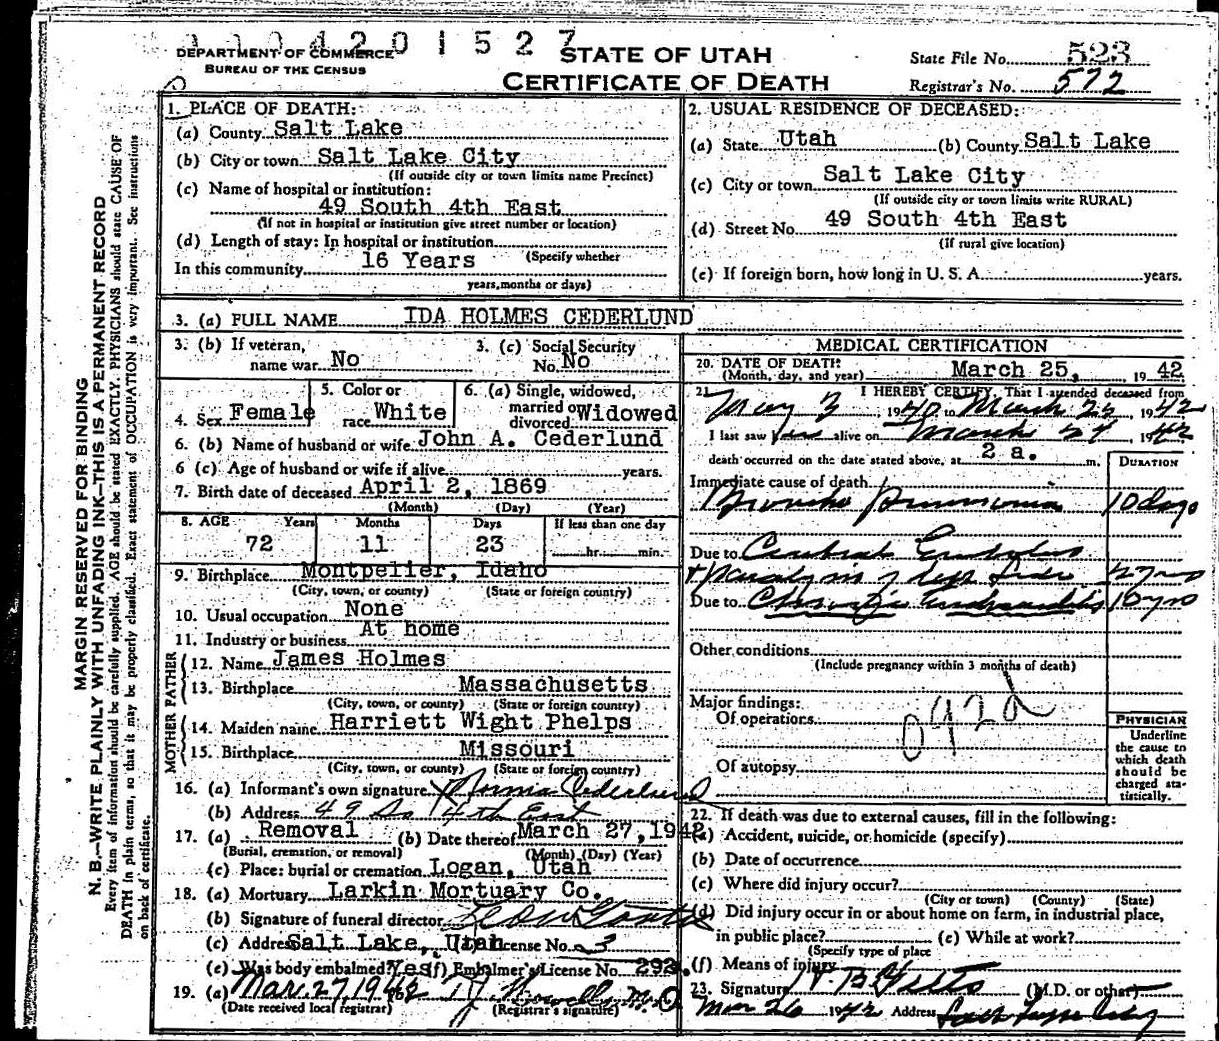 0004201527
DEPARTMENT OF COMMERCE
BUREAU OF THE CENSUS
STATE OF UTAH
CERTIFICATE OF DEATH
State File No. 523
Registrar's No. 572
MARGIN RESERVED FOR BINDING
N. B.—WRITE PLAINLY WITH UNFADING INK—THIS IS A PERMANENT RECORD
Every item of information should be carefully supplied. AGE should be stated EXACTLY. PHYSICIANS should state CAUSE OF
DEATH in plain terms, so that it may be properly classified. Exact statement of OCCUPATION is very important. See instructions
on back of certificate.
1. PLACE OF DEATH:
(a) County Salt Lake
(b) City or town Salt Lake City
(If outside city or town limits name Precinct)
(c) Name of hospital or institution:
49 South 4th East
(If not in hospital or institution give street number or location)
(d) Length of stay: In hospital or institution
(Specify whether
In this community 16 Years
years, months or days)
2. USUAL RESIDENCE OF DECEASED:
(a) State Utah (b) County Salt Lake
(c) City or town Salt Lake City
(If outside city or town limits write RURAL)
(d) Street No. 49 South 4th East
(If rural give location)
(e) If foreign born, how long in U. S. A. years.
3. (a) FULL NAME IDA HOLMES CEDERLUND
3. (b) If veteran,
name war No
3. (c) Social Security
No. No
4. Sex Female
5. Color or
race White
6. (a) Single, widowed,
married or
divorced Widowed
6. (b) Name of husband or wife John A. Cederlund
6 (c) Age of husband or wife if alive years.
7. Birth date of deceased April 2, 1869
(Month) (Day) (Year)
8. AGE Years Months Days If less than one day
72 11 23 hr. min.
9. Birthplace Montpelier, Idaho
(City, town, or county) (State or foreign country)
10. Usual occupation None
11. Industry or business At home
FATHER
12. Name James Holmes
13. Birthplace Massachusetts
(City, town, or county) (State or foreign country)
MOTHER
14. Maiden name Harriett Wight Phelps
15. Birthplace Missouri
(City, town, or county) (State or foreign country)
16. (a) Informant's own signature Norma Cederlund
(b) Address 49 So 4th East
17. (a) Removal (b) Date thereof March 27, 1942
(Burial, cremation, or removal) (Month) (Day) (Year)
(c) Place: burial or cremation Logan, Utah
18. (a) Mortuary Larkin Mortuary Co.
(b) Signature of funeral director
(c) Address Salt Lake, Utah (d) License No. 3
(e) Was body embalmed? Yes (f) Embalmer's License No. 293
19. (a) Mar. 27, 1942 (b) M.D.
(Date received local registrar) (Registrar's signature)
MEDICAL CERTIFICATION
20. DATE OF DEATH:
(Month, day, and year) March 25, 19 42
21. I HEREBY CERTIFY, That I attended deceased from
May 3 1940 to March 25, 1942
I last saw her alive on March 24, 1942
death occurred on the date stated above, at 2 a. m.
DURATION
Immediate cause of death
Broncho pneumonia 10 days
Due to Cerebral Embolus
+ Paralysis of left side 2 yrs
Due to Chronic Endocarditis 10 yrs
Other conditions
(Include pregnancy within 3 months of death)
Major findings:
Of operations
092a
Of autopsy
PHYSICIAN
Underline
the cause to
which death
should be
charged sta-
tistically.
22. If death was due to external causes, fill in the following:
(a) Accident, suicide, or homicide (specify)
(b) Date of occurrence
(c) Where did injury occur?
(City or town) (County) (State)
(d) Did injury occur in or about home on farm, in industrial place,
in public place? (e) While at work?
(Specify type of place
(f) Means of injury
23. Signature (M.D. or other)
Mar 26 1942 Address Salt Lake City